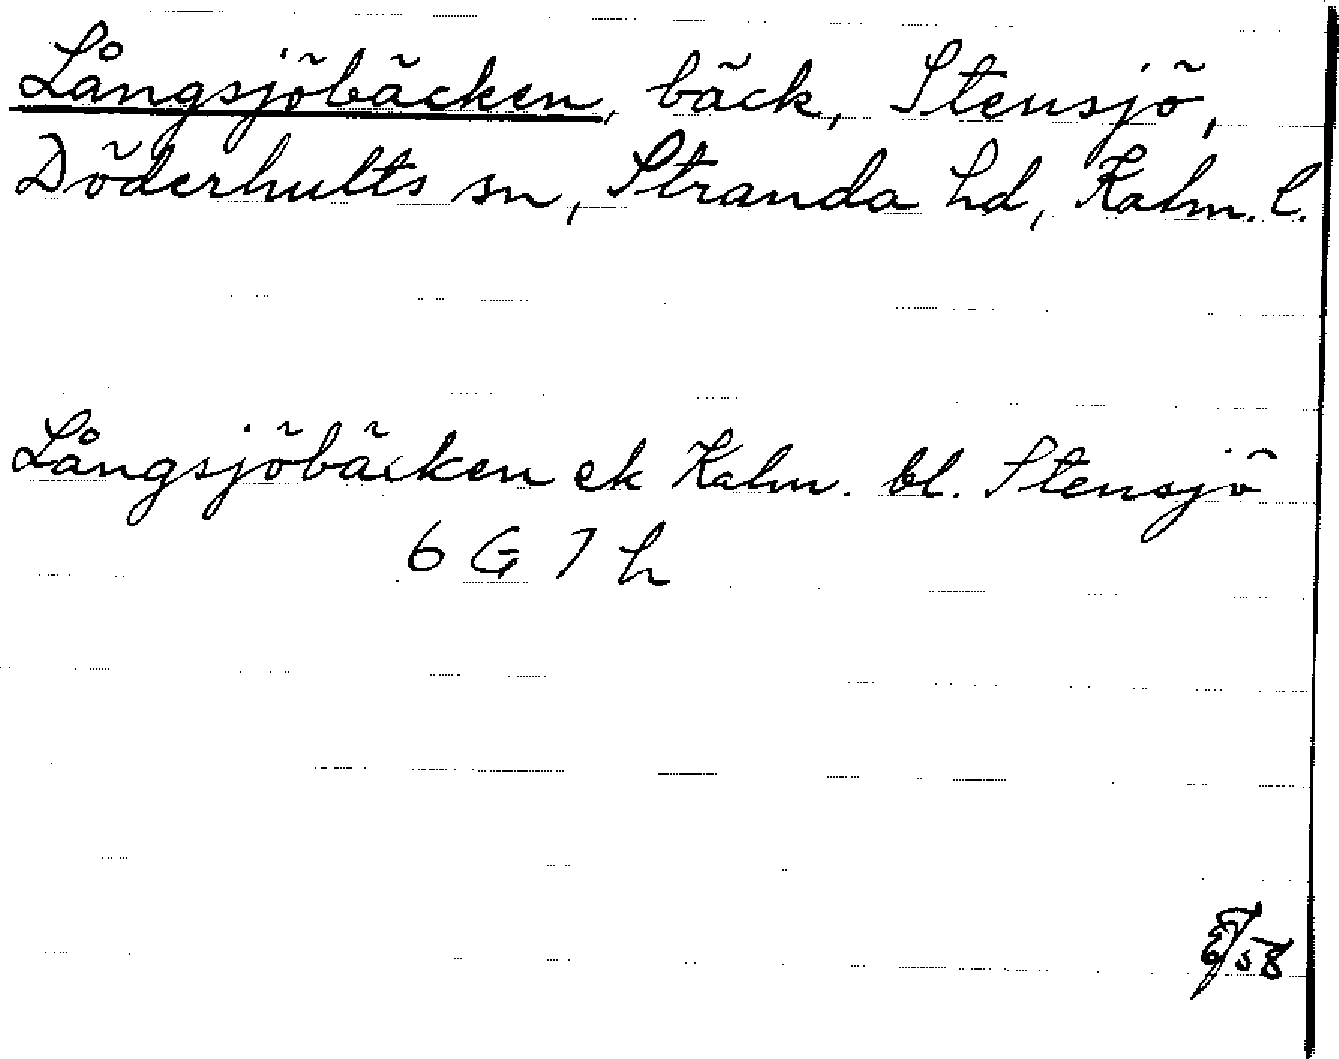 Långsjöbäcken, bäck, Stensjö,
Döderhults sn, Stranda hd, Kalm. l.
Långsjöbäcken ek Kalm. bl. Stensjö
6 G 7 h